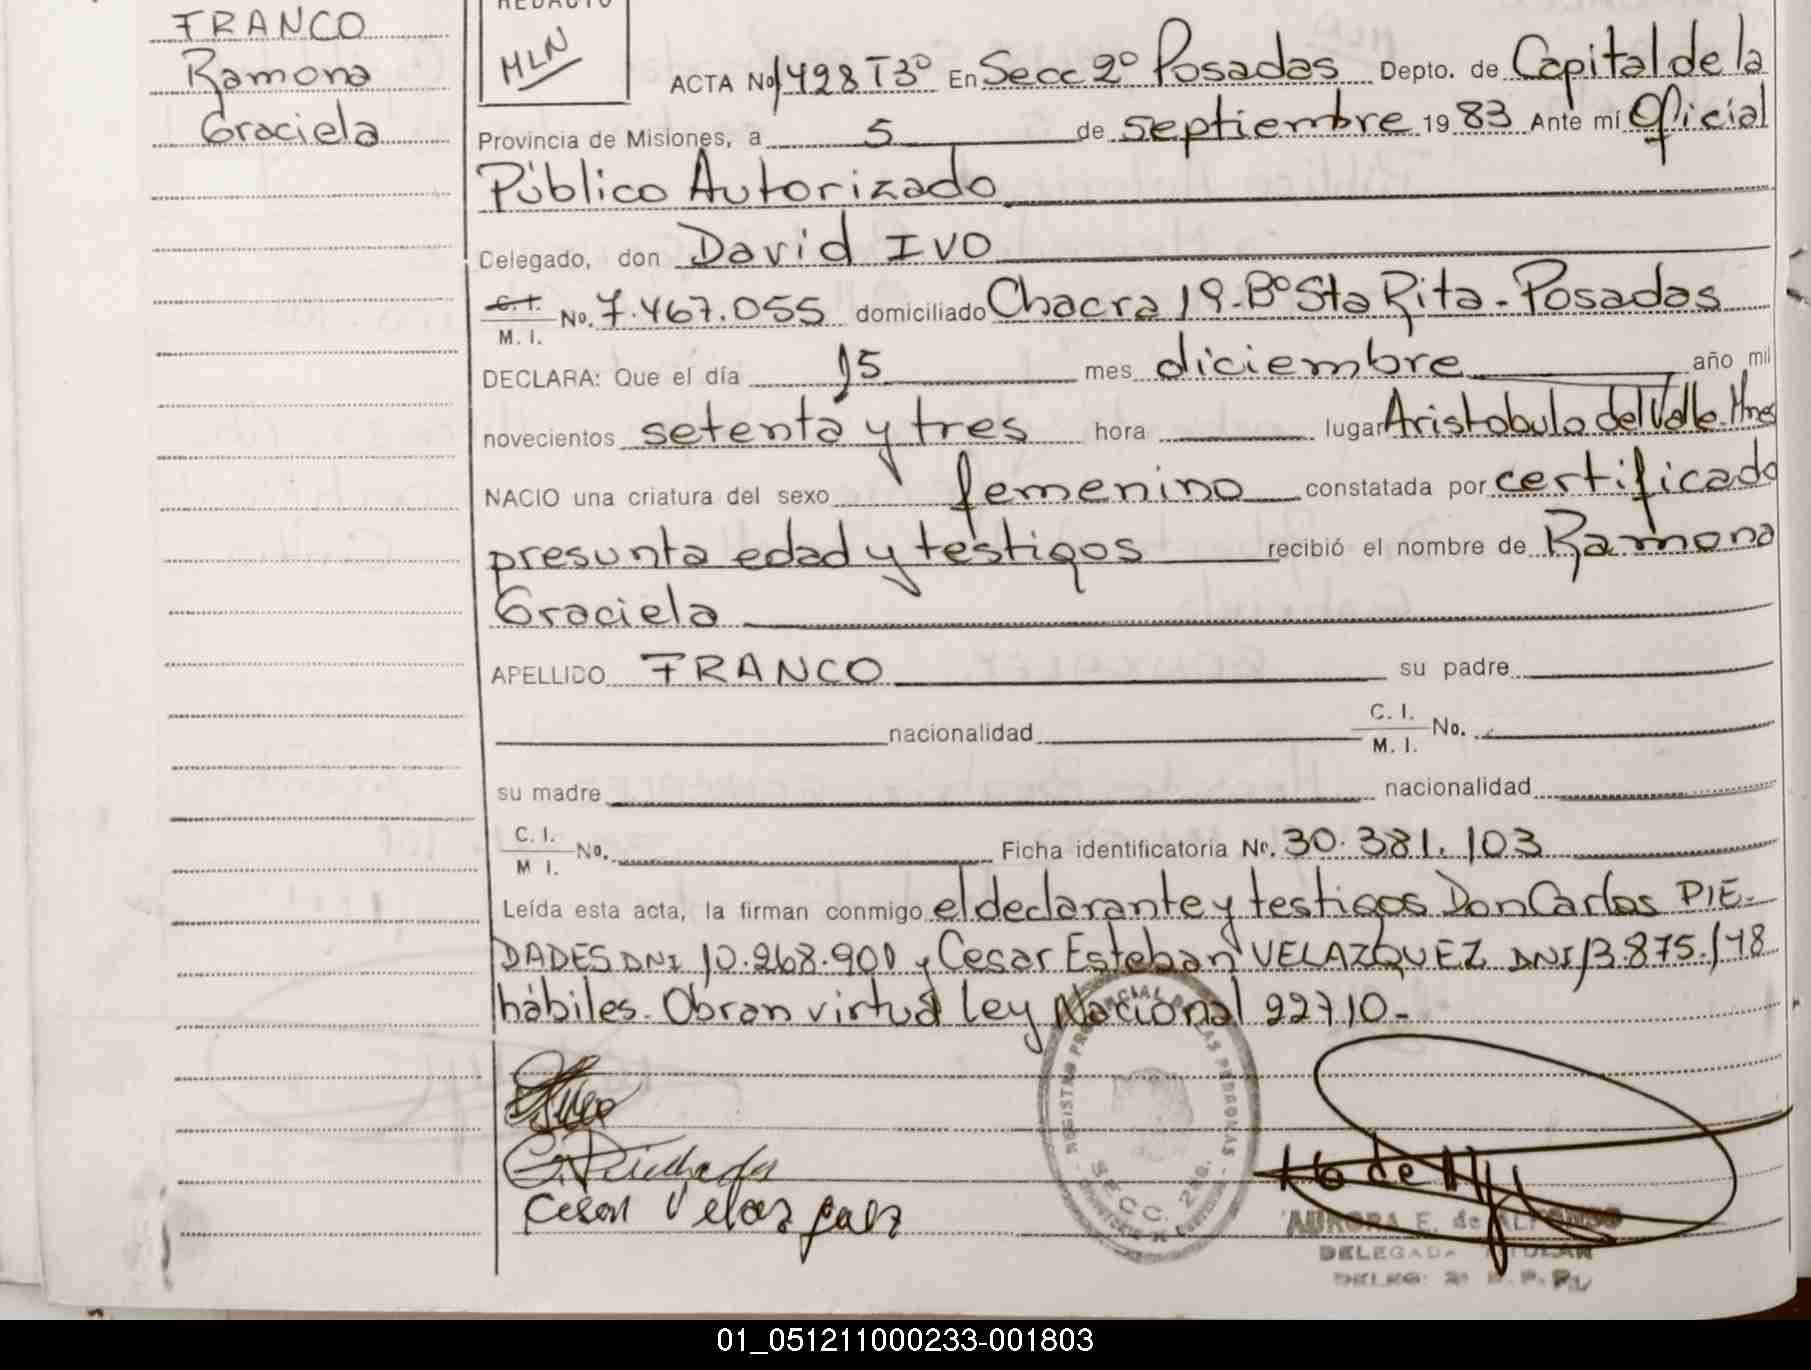 FRANCO
Ramona
Graciela
REDACTO
MLN
ACTA No 1428 T3º En Secc 2º Posadas Depto. de Capital de la
Provincia de Misiones, a 5 de septiembre 19 83 Ante mí Oficial
Público Autorizado
Delegado, don David IVO
C. I. / M. I. No. 7.467.055 domiciliado Chacra 19-Bº Sta Rita-Posadas
DECLARA: Que el día 15 mes diciembre año mil
novecientos setenta y tres hora lugar Aristobulo del Valle-Mnes
NACIO una criatura del sexo femenino constatada por certificado
presunta edad y testigos recibió el nombre de Ramona
Graciela
APELLIDO FRANCO su padre
nacionalidad C. I. / M. I. No.
su madre nacionalidad
C. I. / M I. No. Ficha identificatoria No. 30.381.103
Leída esta acta, la firman conmigo el declarante y testigos Don Carlos PIE-
DADES DNI 10.268.900 y Cesar Esteban VELAZQUEZ DNI 13.875.148
hábiles. Obran virtud Ley Nacional 22710-
REGISTRO PROVINCIAL DE LAS PERSONAS
SECC. 2da.
Cesar Velazquez
AURORA E. de ALFONSO
DELEGADA TITULAR
01_051211000233-001803